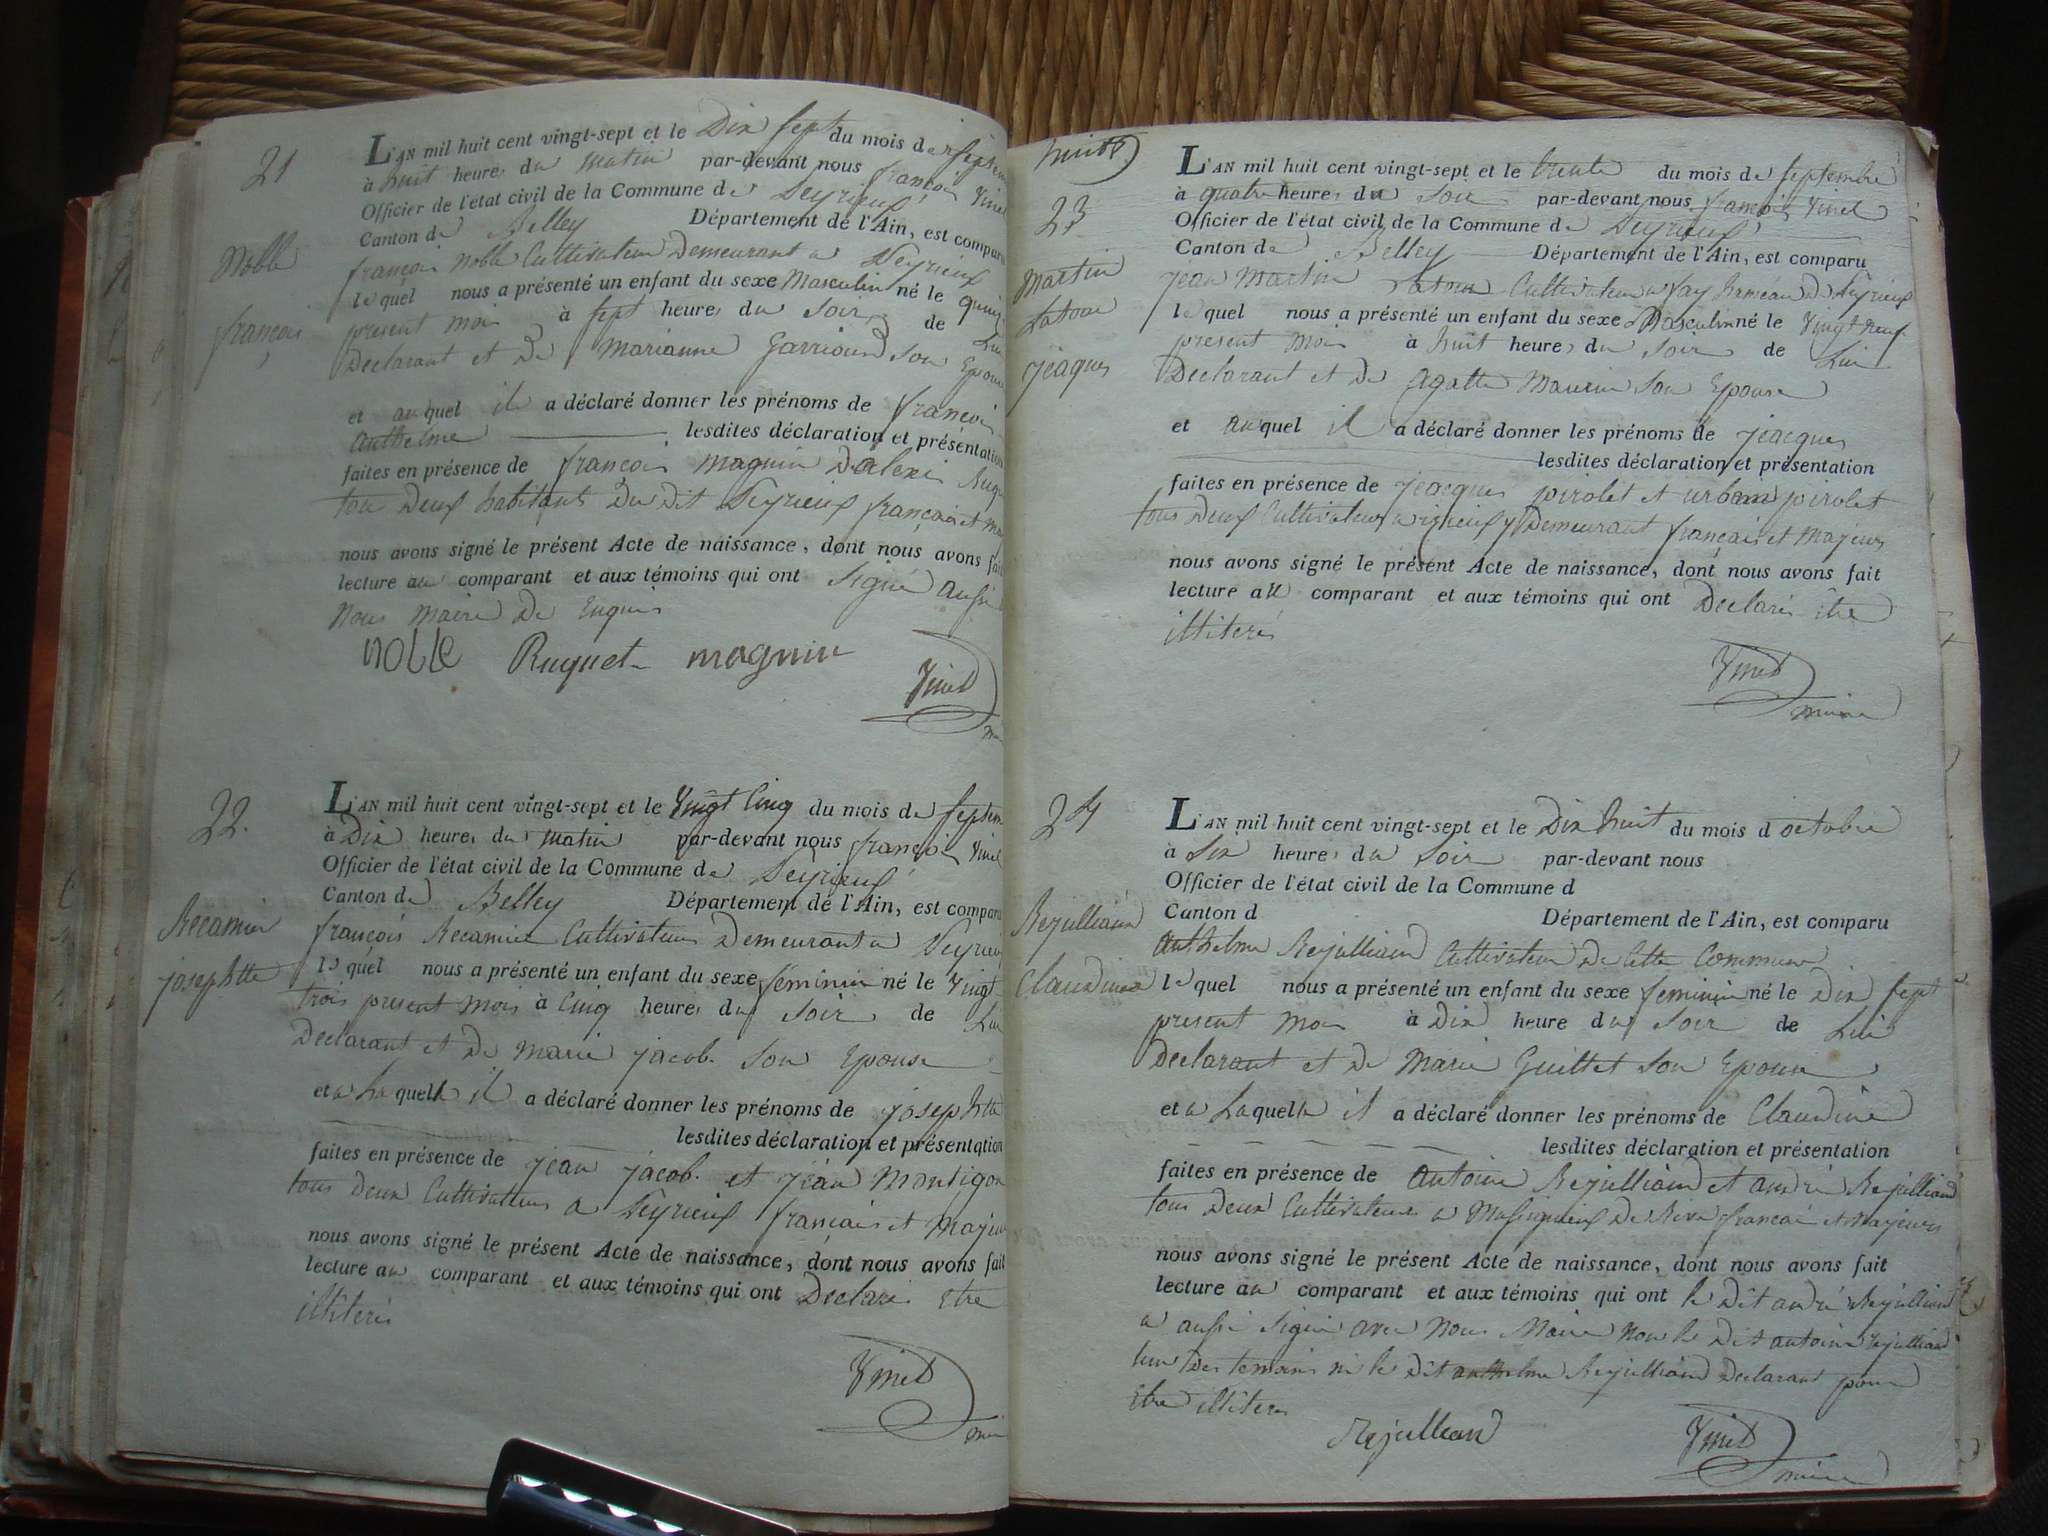 21
Noble
françois
L'AN mil huit cent vingt-sept et le Dix Sept du mois de Septem
à huit heures du matin par-devant nous françois Vinet
Officier de l'état civil de la Commune de Seyrieux
Canton de Belley Département de l'Ain, est comparu
françois Noble Cultivateur Demeurant a Seyrieux
lequel nous a présenté un enfant du sexe Masculin né le quinz
present mois à Sept heures du Soir de Lui
Declarant et De marianne Garrioud Son Epouse
et auquel il a déclaré donner les prénoms de françois
Anthelme lesdites déclaration et présentation
faites en présence de françois magnin
tous Deux habitants Du Dit Seyrieux français et ma
nous avons signé le présent Acte de naissance, dont nous avons fait
lecture au comparant et aux témoins qui ont Signé aussi
Nous Maire De Enquis
noble Ruquet magnin
Vinet
22.
Recamier
josephtte
L'AN mil huit cent vingt-sept et le Vingt Cinq du mois de Septem
à Dix heures du matin par-devant nous françois Vinet
Officier de l'état civil de la Commune de Seyrieux
Canton de Belley Département de l'Ain, est comparu
françois Recamier Cultivateur Demeurant a Seyrieux
lequel nous a présenté un enfant du sexe féminin né le Vingt
trois present mois à Cinq heures du Soir de Lui
Declarant et De Marie jacob Son Epouse
et a Laquelle il a déclaré donner les prénoms de josephtte
lesdites déclaration et présentation
faites en présence de jean jacob et jean Montigon
tous Deux Cultivateurs a Seyrieux français et majeur
nous avons signé le présent Acte de naissance, dont nous avons fait
lecture au comparant et aux témoins qui ont Declaré Etre
illiterés
Vinet
huit
23
Martin
Latour
jeaques
L'AN mil huit cent vingt-sept et le trente du mois de Septembre
à quatre heures du Soir par-devant nous francois Vinet
Officier de l'état civil de la Commune de Seyrieux
Canton de Belley Département de l'Ain, est comparu
jean Martin Latour Cultivateur a fay hameau de Seyrieux
lequel nous a présenté un enfant du sexe Masculin né le Vingt neuf
present Mois à huit heures du Soir de Lui
Declarant et De Agatte Maurin Son Epouse
et auquel il a déclaré donner les prénoms de jeacques
lesdites déclaration et présentation
faites en présence de jeacques pirolet et urbain pirolet
tous Deux Cultivateurs a y Demeurant français et Majeurs
nous avons signé le présent Acte de naissance, dont nous avons fait
lecture au comparant et aux témoins qui ont Declaré être
illiterés
Vinet
maire
24
Rejulliand
Claudine
L'AN mil huit cent vingt-sept et le Dix huit du mois d octobre
à Six heures du Soir par-devant nous
Officier de l'état civil de la Commune d
Canton d Département de l'Ain, est comparu
Anthelme Rejulliand Cultivateur De Cette Commune
lequel nous a présenté un enfant du sexe feminin né le Dix Sept
present mois à Dix heure du Soir de Lui
Declarant et De Marie Guillet Son Epouse
et a Laquelle il a déclaré donner les prénoms de Claudine
lesdites déclaration et présentation
faites en présence de Antoine Rejulliand et andré Rejulliand
tous Deux Cultivateurs a De français et Majeurs
nous avons signé le présent Acte de naissance, dont nous avons fait
lecture au comparant et aux témoins qui ont le Dit andré Rejulliand
a aussi Signé avec Nous Maire Non le Dit antoine rejulliand
l'un Des temoins ni le Dit anthelme Rejulliand Declarant pour
Etre illiterés
Rejulliand
Vinet
maire